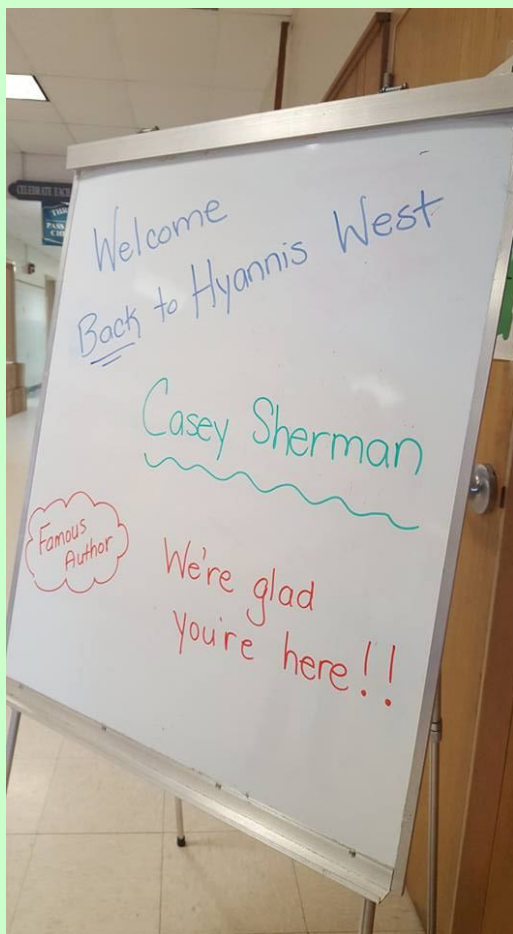 Welcome
Back to Hyannis West
Casey Sherman
Famous
Author
We're glad
you're here!!